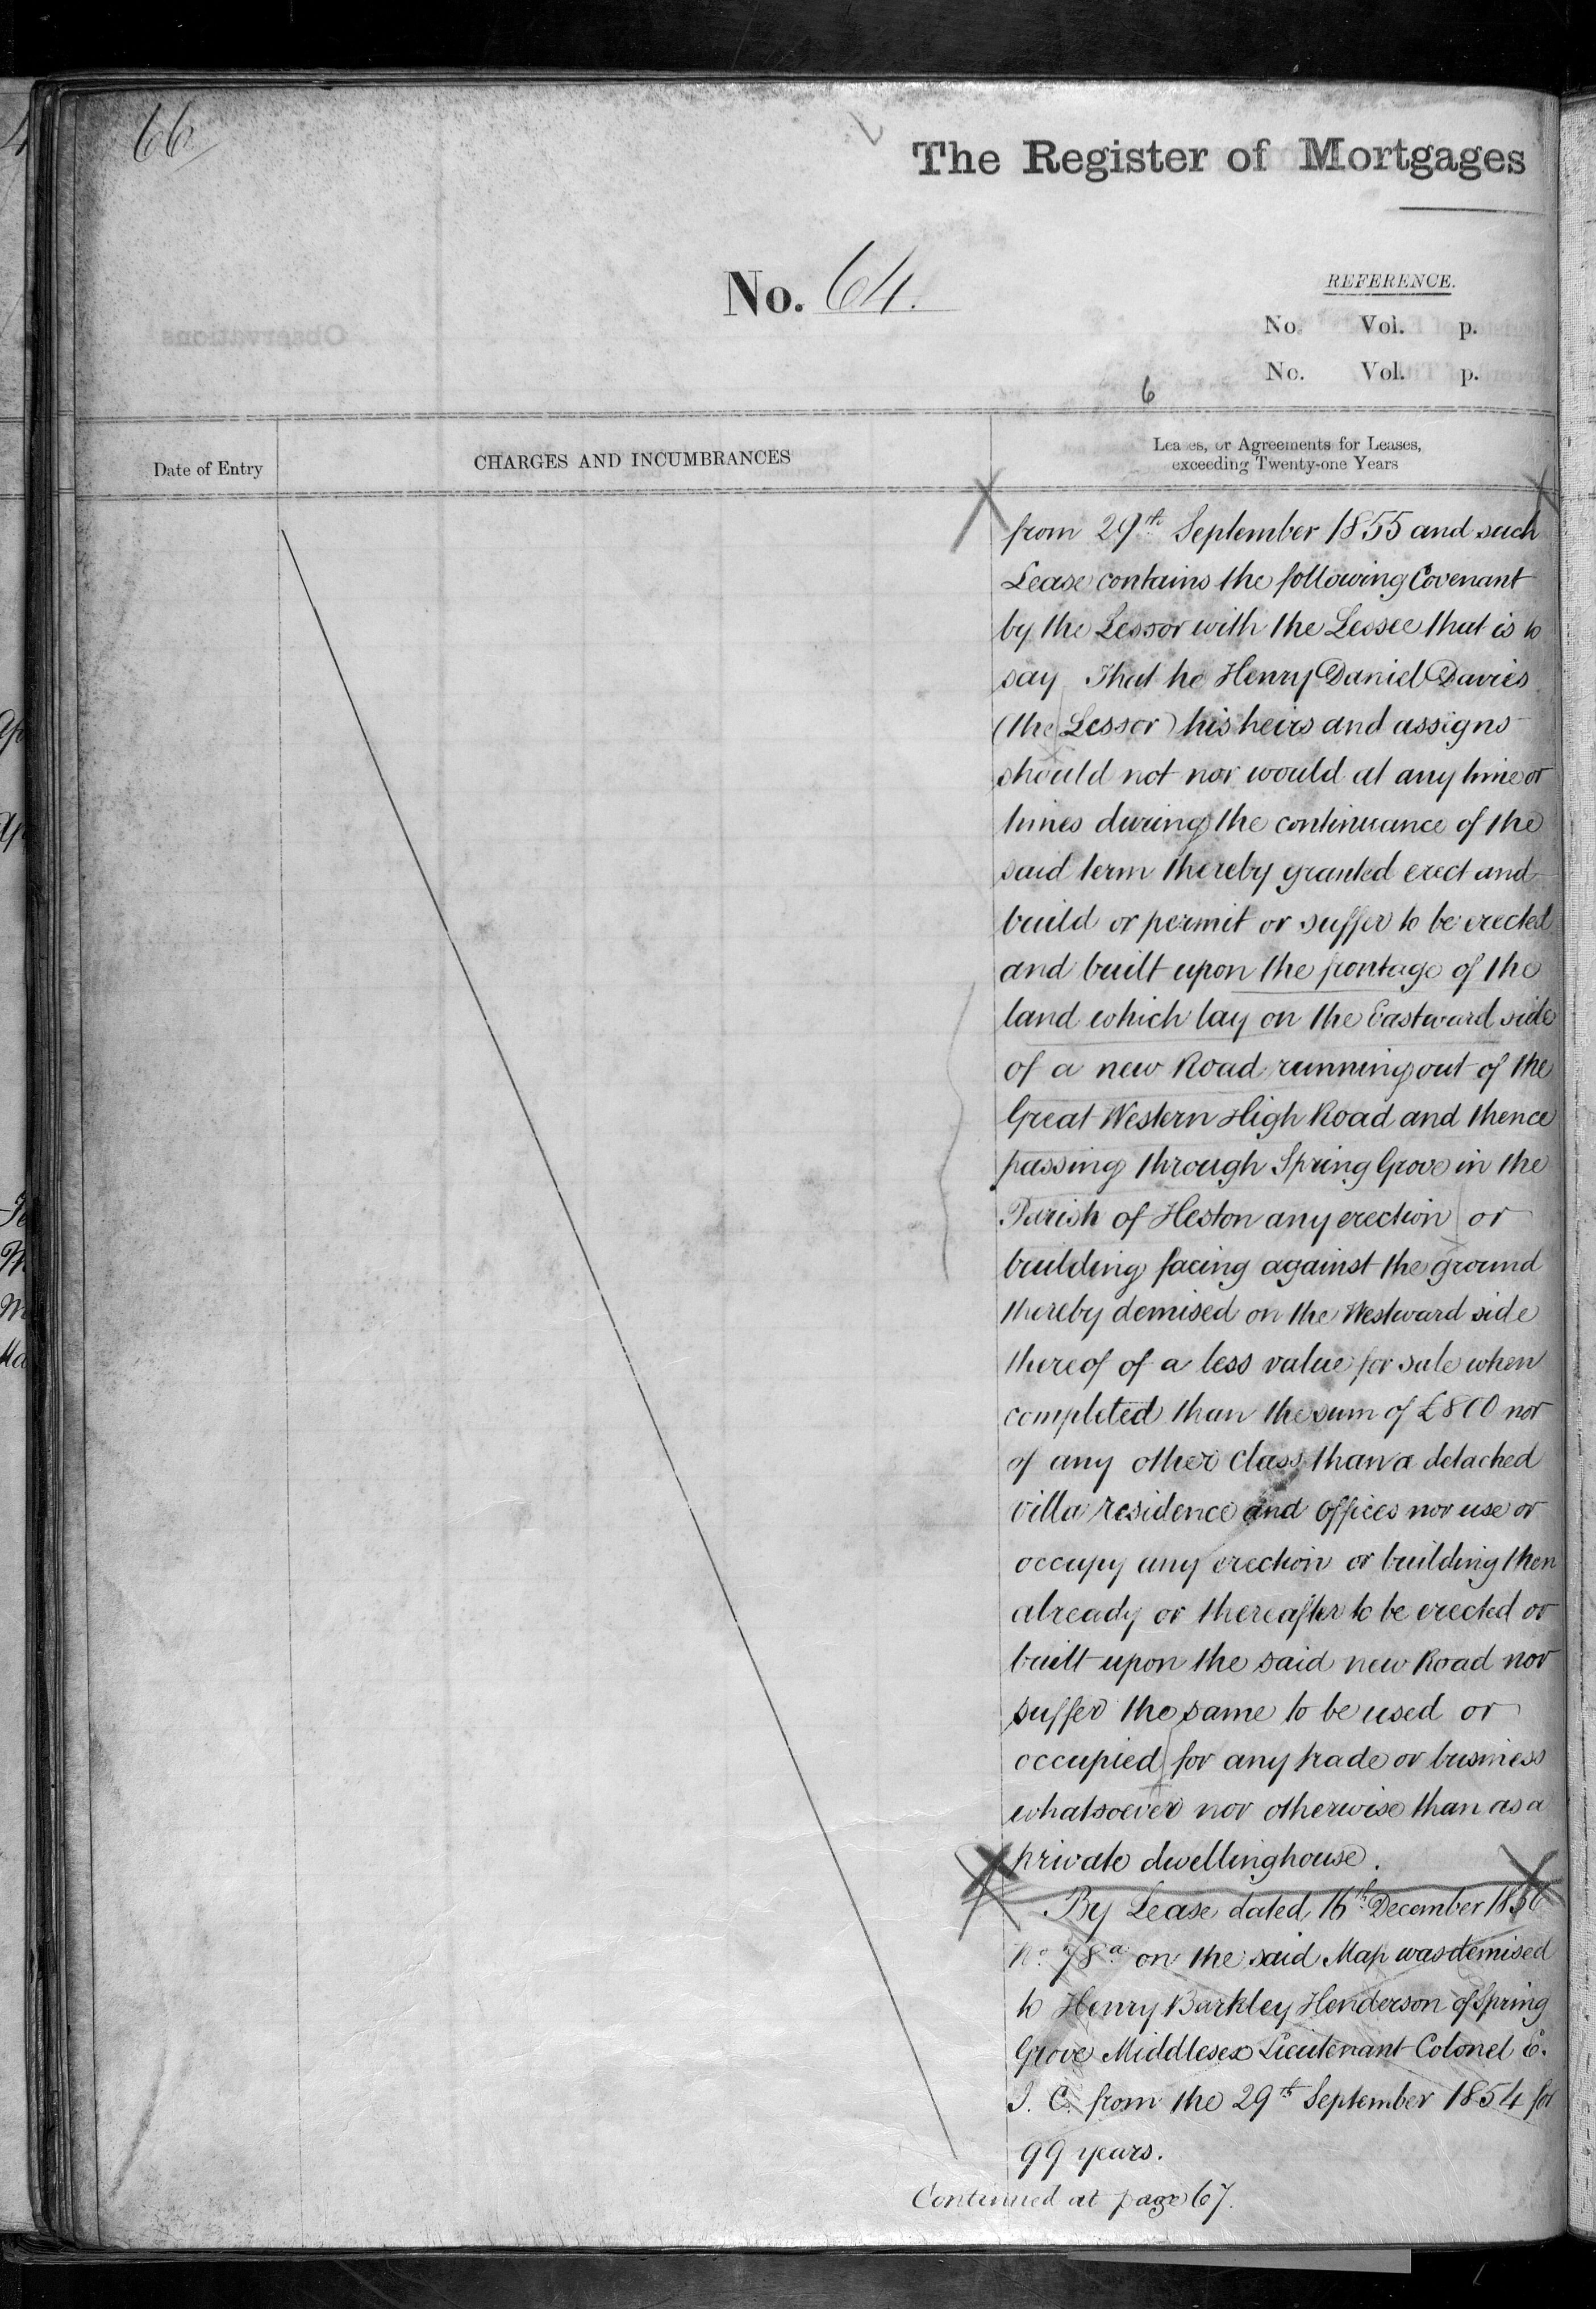 66
The Register of Mortgages
No. 64.
REFERENCE.
No. Vol. p.
No. Vol. p.
6
Date of Entry
CHARGES AND INCUMBRANCES
Leases, or Agreements for Leases,
exceeding Twenty-one Years
from 29th September 1855 and such
Lease contains the following Covenant
by the Lessor with the Lessee that is to
say That he Henry Daniel Davies
(the Lessor) his heirs and assigns
should not nor would at any time or
times during the continuance of the
said term thereby granted erect and
build or permit or suffer to be erected
and built upon the frontage of the
land which lay on the Eastward side
of a new Road running out of the
Great Western High Road and thence
passing through Spring Grove in the
Parish of Heston any erection or
building facing against the ground
thereby demised on the Westward side
thereof of a less value for sale when
completed than the sum of £800 nor
of any other class than a detached
villa residence and offices nor use or
occupy any erection or building then
already or thereafter to be erected or
built upon the said new Road nor
suffer the same to be used or
occupied for any trade or business
whatsoever nor otherwise than as a
private dwellinghouse.
By Lease dated 16th December 1856
No. 78a on the said Map was demised
to Henry Barkley Henderson of Spring
Grove Middlesex Lieutenant Colonel E.
I. C. from the 29th September 1854 for
99 years.
Continued at page 67.